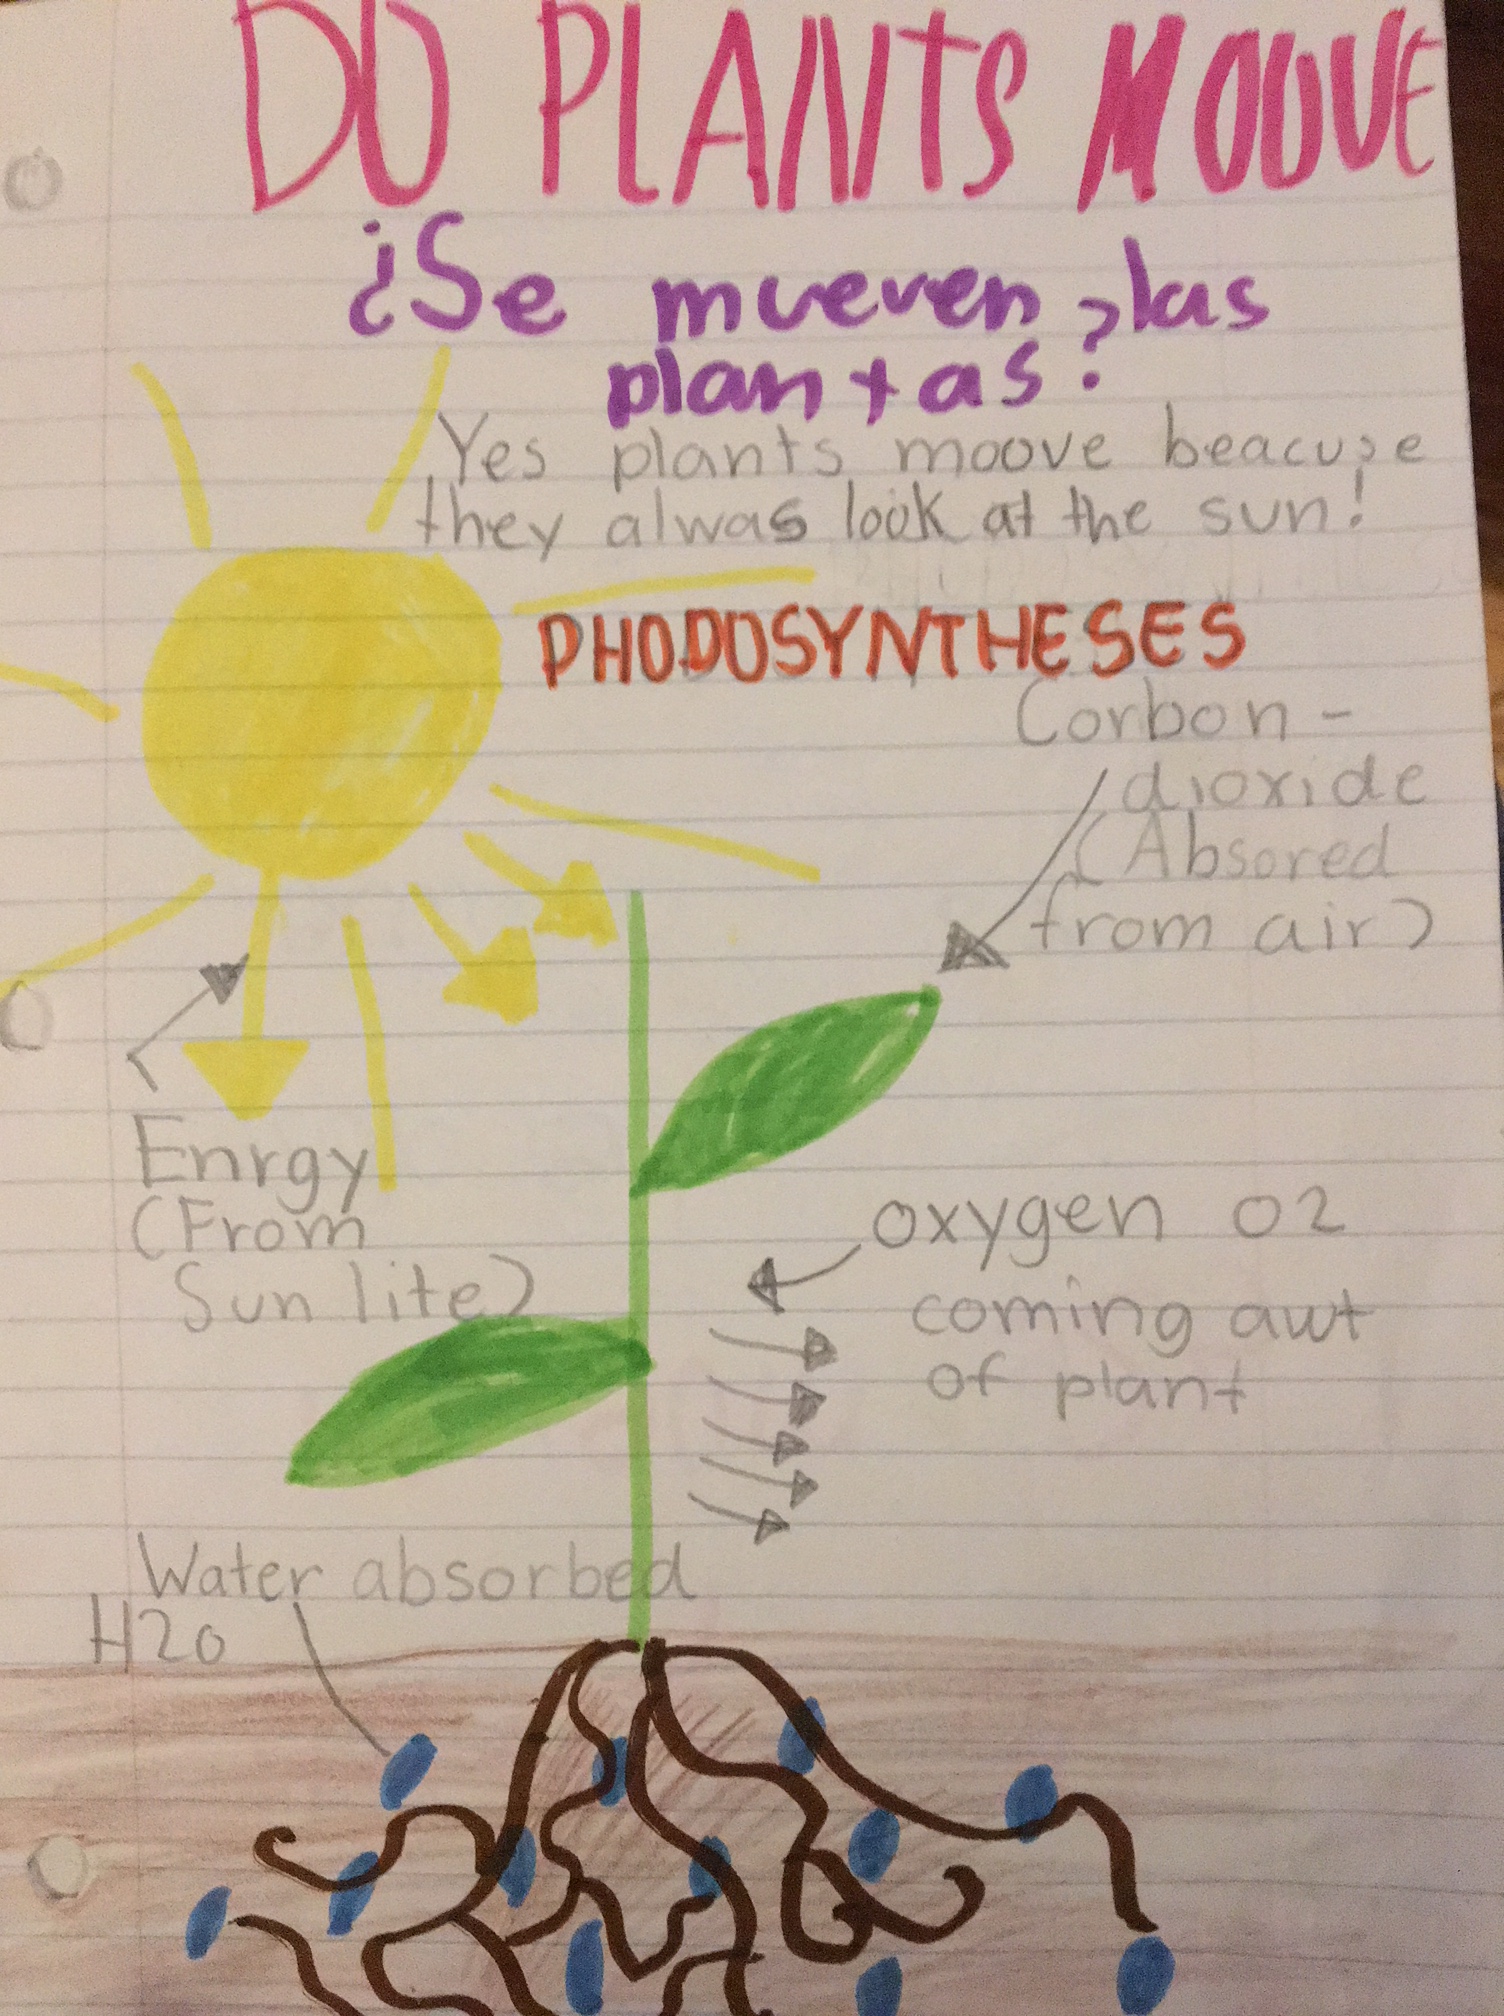 DO PLANTS MOOVE
¿Se mueven las
plantas?
Yes plants moove beacuse
they alwas look at the sun!
PHODOSYNTHESES
Corbon-
dioxide
(Absored
from air)
Enrgy
(From
Sun lite)
oxygen O2
coming awt
of plant
Water absorbed
H2O